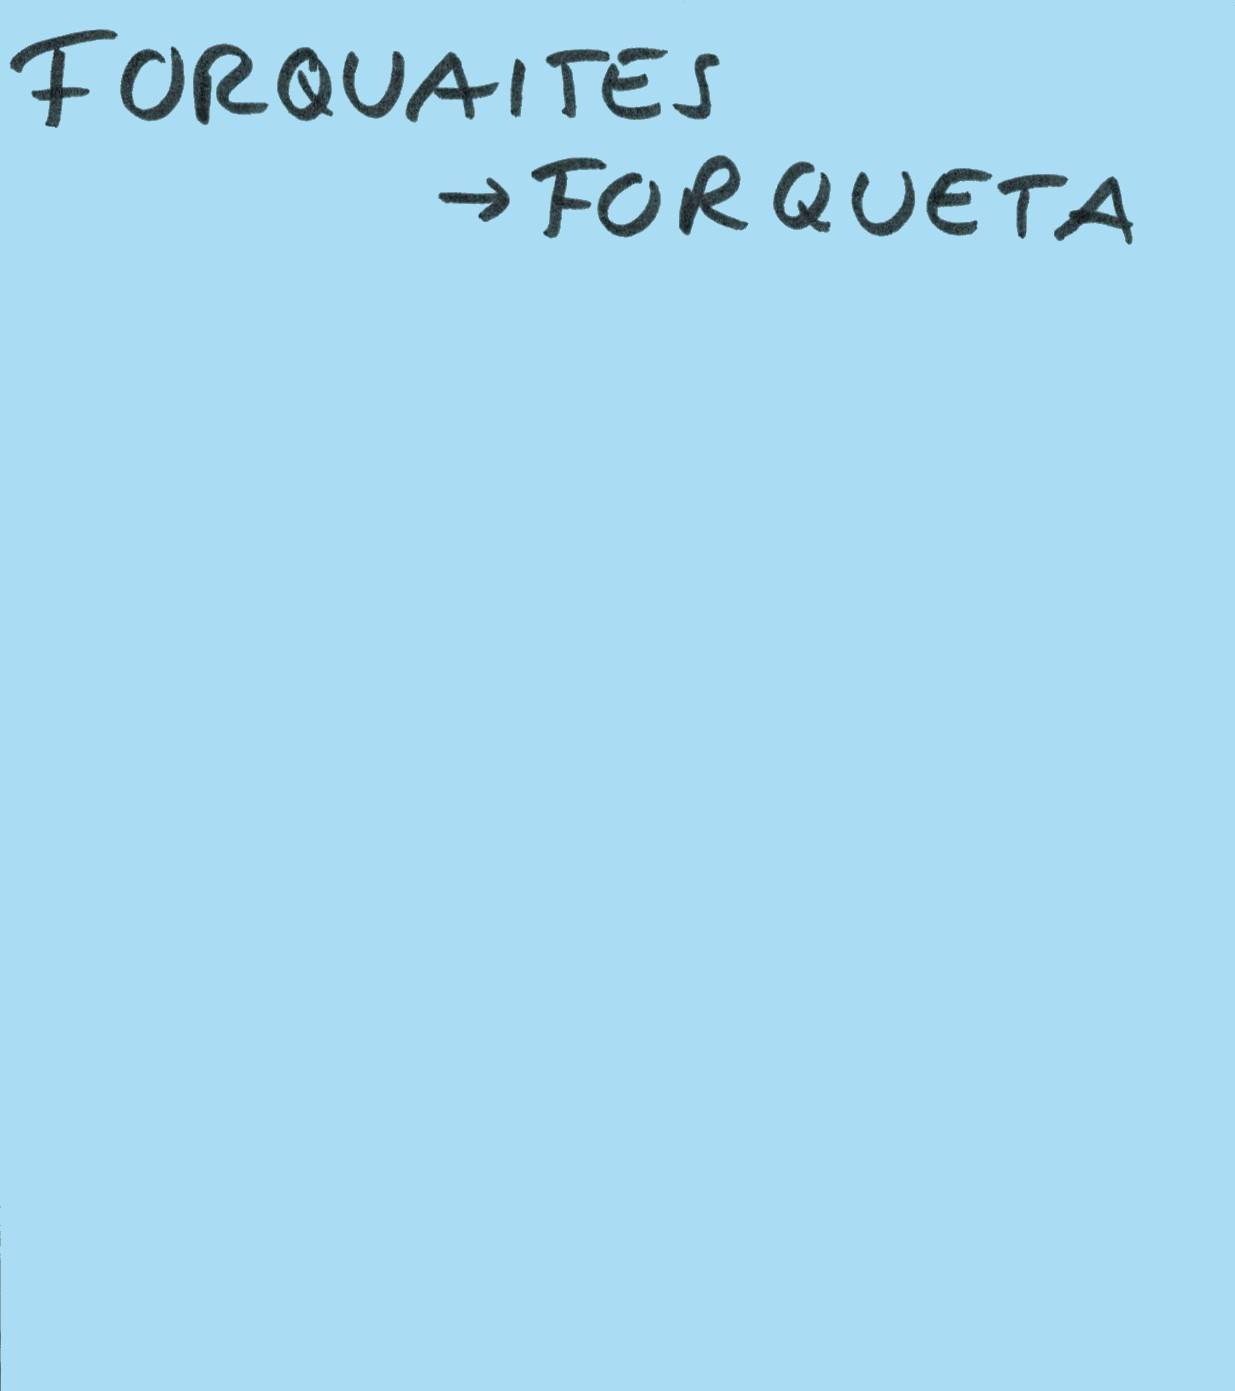 FORQUAITES
→ FORQUETA